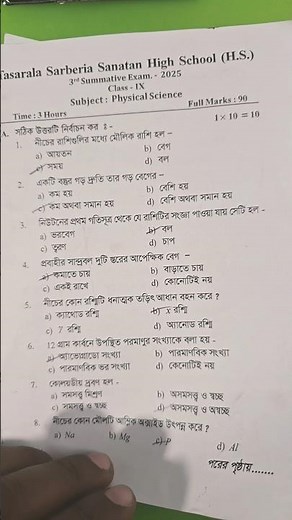 Tasarala Sarberia Sanatan High School (H.S.)
3rd Summative Exam. - 2025
Class - IX
Subject : Physical Science
Time : 3 Hours Full Marks : 90
A. সঠিক উত্তরটি নির্বাচন কর ঃ - 1 × 10 = 10
1. নীচের রাশিগুলির মধ্যে মৌলিক রাশি হল –
a) আয়তন b) বেগ
c) সময় d) বল
2. একটি বস্তুর গড় দ্রুতি তার গড় বেগের –
a) কম হয় b) বেশি হয়
c) কম অথবা সমান হয় d) বেশি অথবা সমান হয়
3. নিউটনের প্রথম গতিসূত্র থেকে যে রাশিটির সংজ্ঞা পাওয়া যায় সেটি হল -
a) ভরবেগ b) বল
c) ত্বরণ d) চাপ
4. প্রবাহীর সান্দ্রবল দুটি স্তরের আপেক্ষিক বেগ –
a) কমাতে চায় b) বাড়াতে চায়
c) একই রাখে d) কোনোটিই নয়
5. নীচের কোন রশ্মিটি ধনাত্মক তড়িৎআধান বহন করে ?
a) ক্যাথোড রশ্মি b) x রশ্মি
c) রশ্মি d) অ্যানোড রশ্মি
6. 12 গ্রাম কার্বনে উপস্থিত পরমাণুর সংখ্যাকে বলা হয় -
a) অ্যাভোগাড্রো সংখ্যা b) পারমাণবিক সংখ্যা
c) পারমাণবিক ভর সংখ্যা d) কোনোটিই নয়
7. কোলয়ডীয় দ্রবণ হল -
a) সমসত্ত্ব মিশ্রণ b) অসমসত্ত্ব ও স্বচ্ছ
c) সমসত্ত্ব ও স্বচ্ছ d) অসমসত্ত্ব ও অস্বচ্ছ
8. নীচের কোন মৌলটি আম্লিক অক্সাইড উৎপন্ন করে ?
a) Na b) Mg c) P d) Al
পরের পৃষ্ঠায়.......